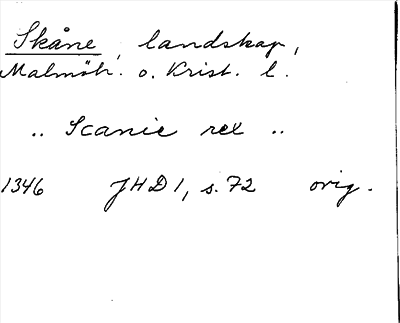 Skåne, landskap,
Malmöh. o. Krist. l.
.. Scanie rex ..
1346 JHD 1, s. 72 orig.